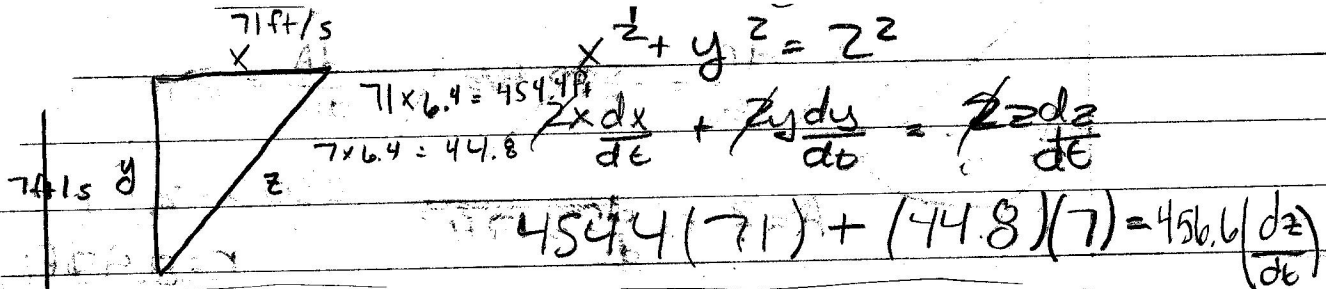 71ft/s
x
x² + y² = z²
71 x 6.4 = 454.4ft
2x dx/dt + 2y dy/dt = 2z dz/dt
7 x 6.4 = 44.8
7ft/s y z
454.4(71) + (44.8)(7) = 456.6(dz/dt)